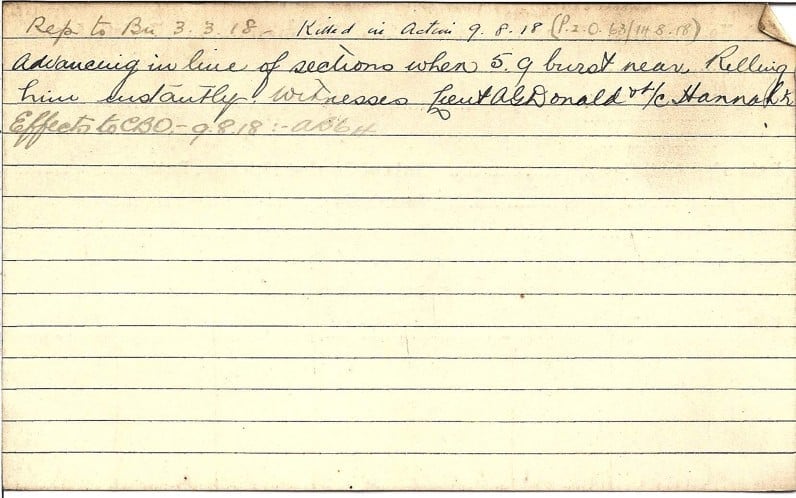 Rep to Bn 3.3.18.- Killed in Action 9.8.18 (P.2.O. 63/14.8.18)
advancing in line of sections when 5.9 burst near, Killing
him instantly. Witnesses Lieut AG Donald & L/c Hannah
Effects to CBO - 9.8.18 :-